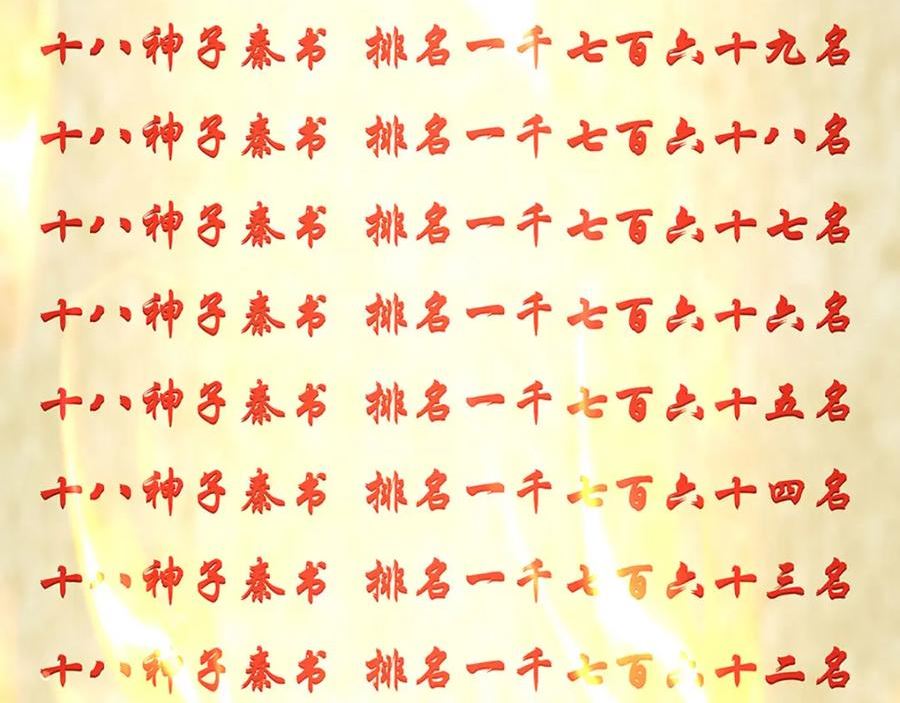 十八神子秦书 排名一千七百六十九名
十八神子秦书 排名一千七百六十八名
十八神子秦书 排名一千七百六十七名
十八神子秦书 排名一千七百六十六名
十八神子秦书 排名一千七百六十五名
十八神子秦书 排名一千七百六十四名
十八神子秦书 排名一千七百六十三名
十八神子秦书 排名一千七百六十二名